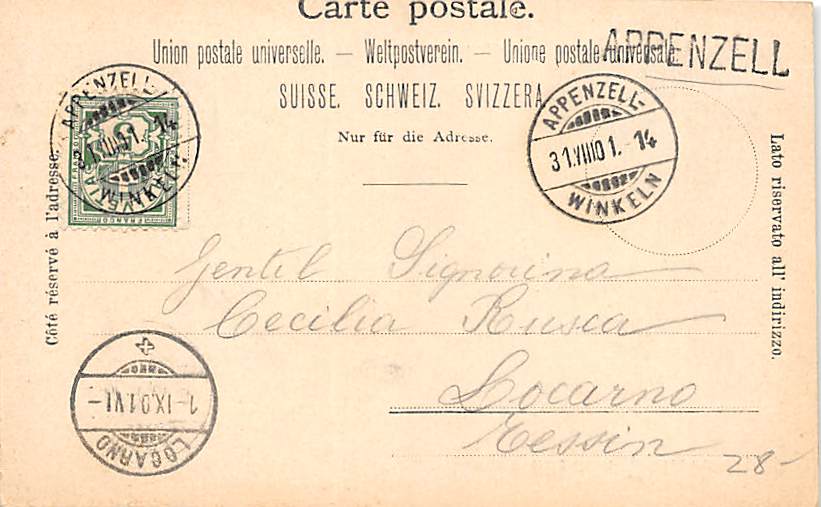 Carte postale.
Union postale universelle. — Weltpostverein. — Unione postale universale.
APPENZELL
SUISSE. SCHWEIZ. SVIZZERA
Nur für die Adresse.
APPENZELL-
31.VIII01.-14
WINKELN
APPENZELL-
31.VIII.01.-14
WINKELN
FRANCO
Côté réservé à l'adresse.
Lato riservato all' indirizzo.
Gentil Signorina
Cecilia Rusca
Locarno
Tessin
LOCARNO
1-IX.01.VI-
28-